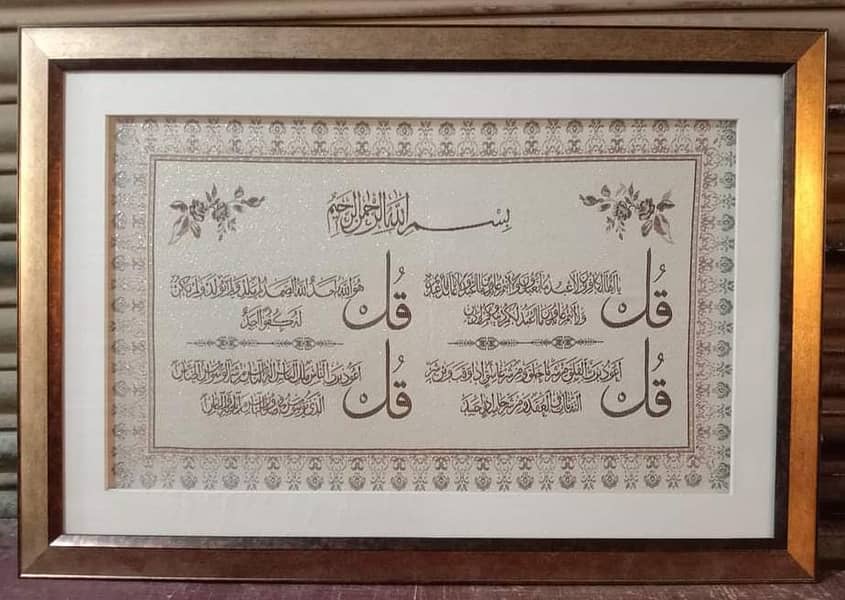 بسم الله الرحمن الرحيم
قل يا أيها الكافرون لا أعبد ما تعبدون ولا أنتم عابدون ما أعبد ولا أنا عابد ما عبدتم
ولا أنتم عابدون ما أعبد لكم دينكم ولي دين
قل هو الله أحد الله الصمد لم يلد ولم يولد ولم يكن
له كفوا أحد
قل أعوذ برب الفلق من شر ما خلق ومن شر غاسق إذا وقب ومن شر
النفاثات في العقد ومن شر حاسد إذا حسد
قل أعوذ برب الناس ملك الناس إله الناس من شر الوسواس الخناس
الذي يوسوس في صدور الناس من الجنة والناس